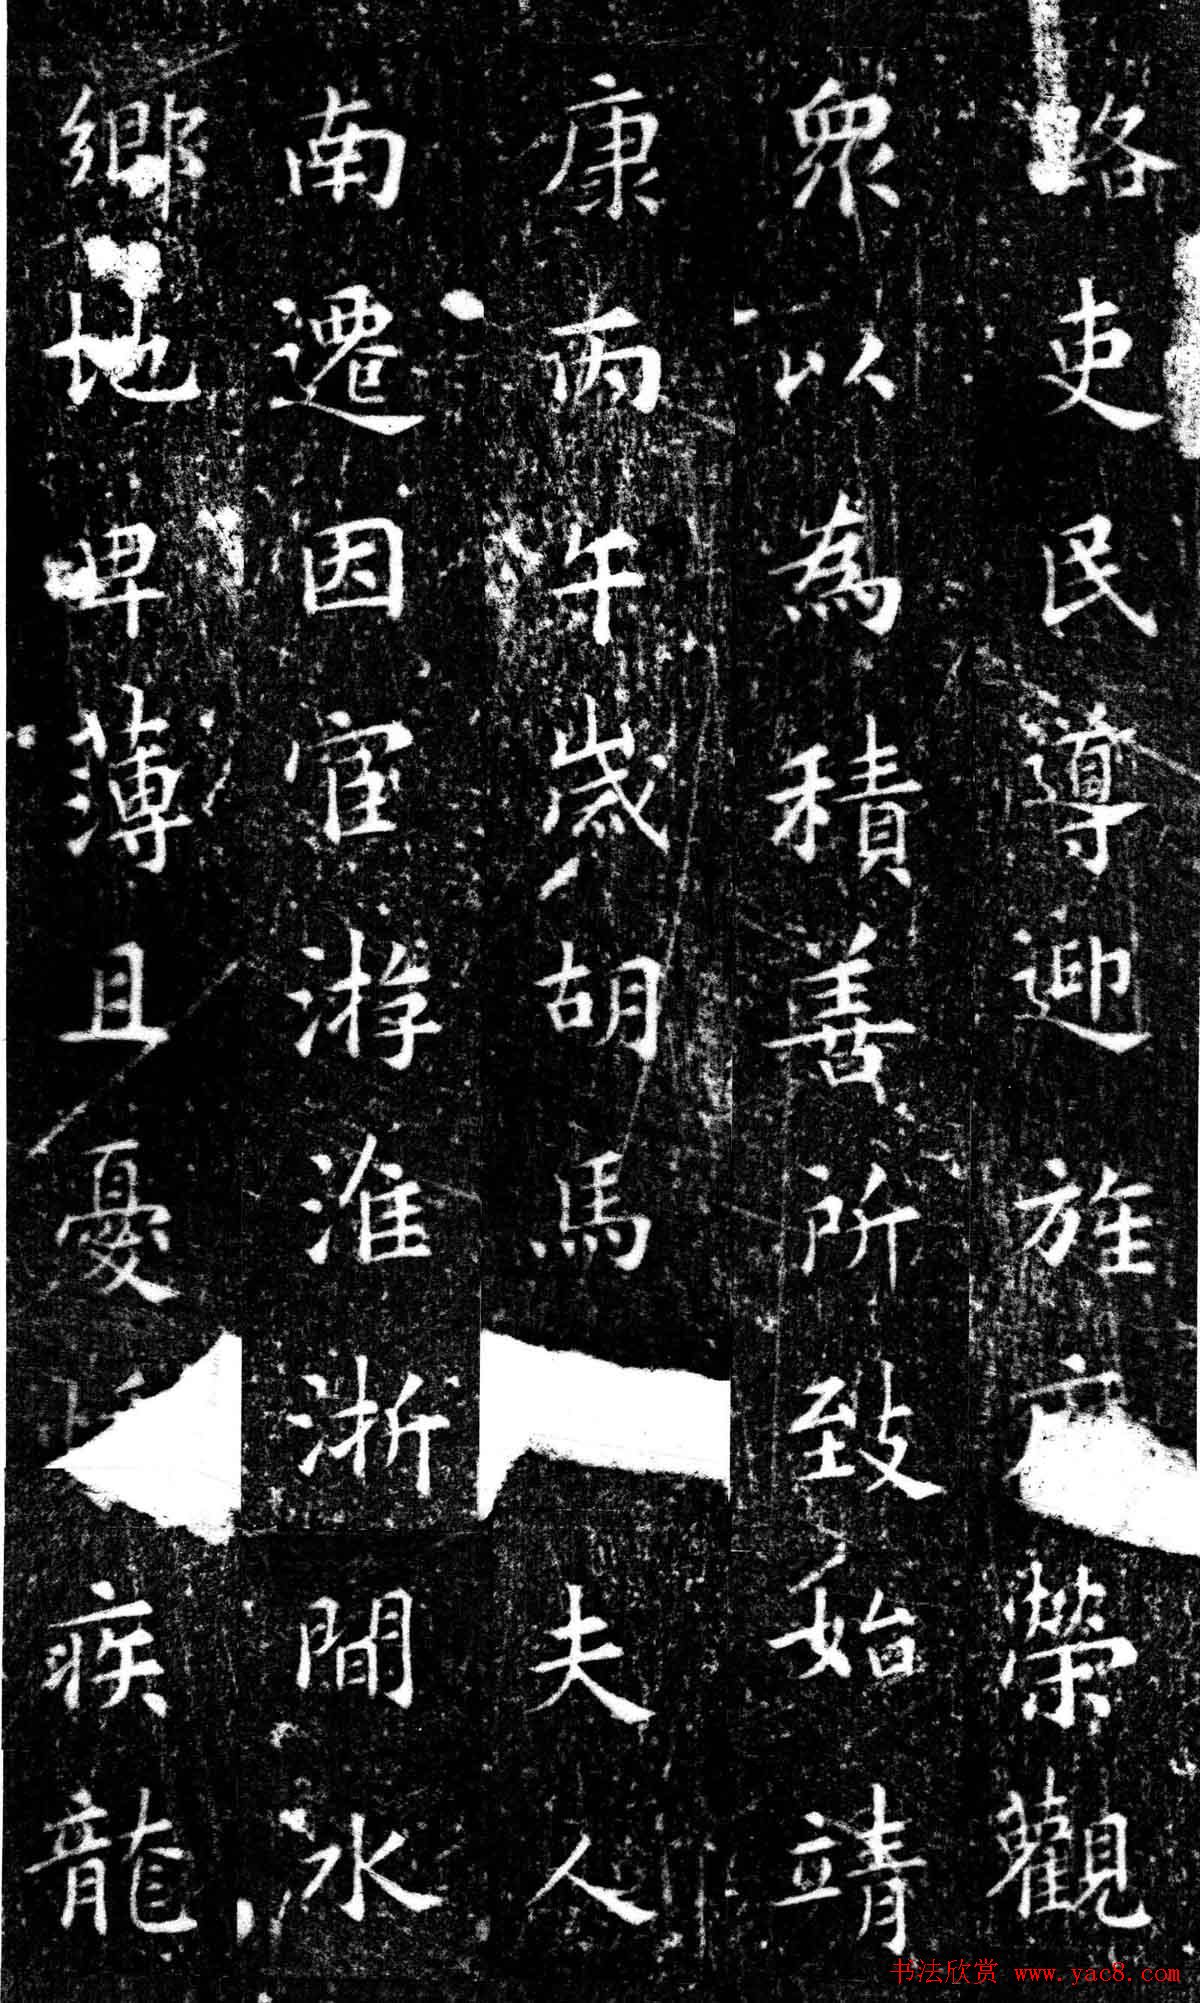 路吏民導迎旌榮觀
衆以為積善所致始靖
康丙午歲胡馬夫人
南遷因宦游淮浙間水
鄉地卑薄且憂疾龍
书法欣赏 www.yac8.com